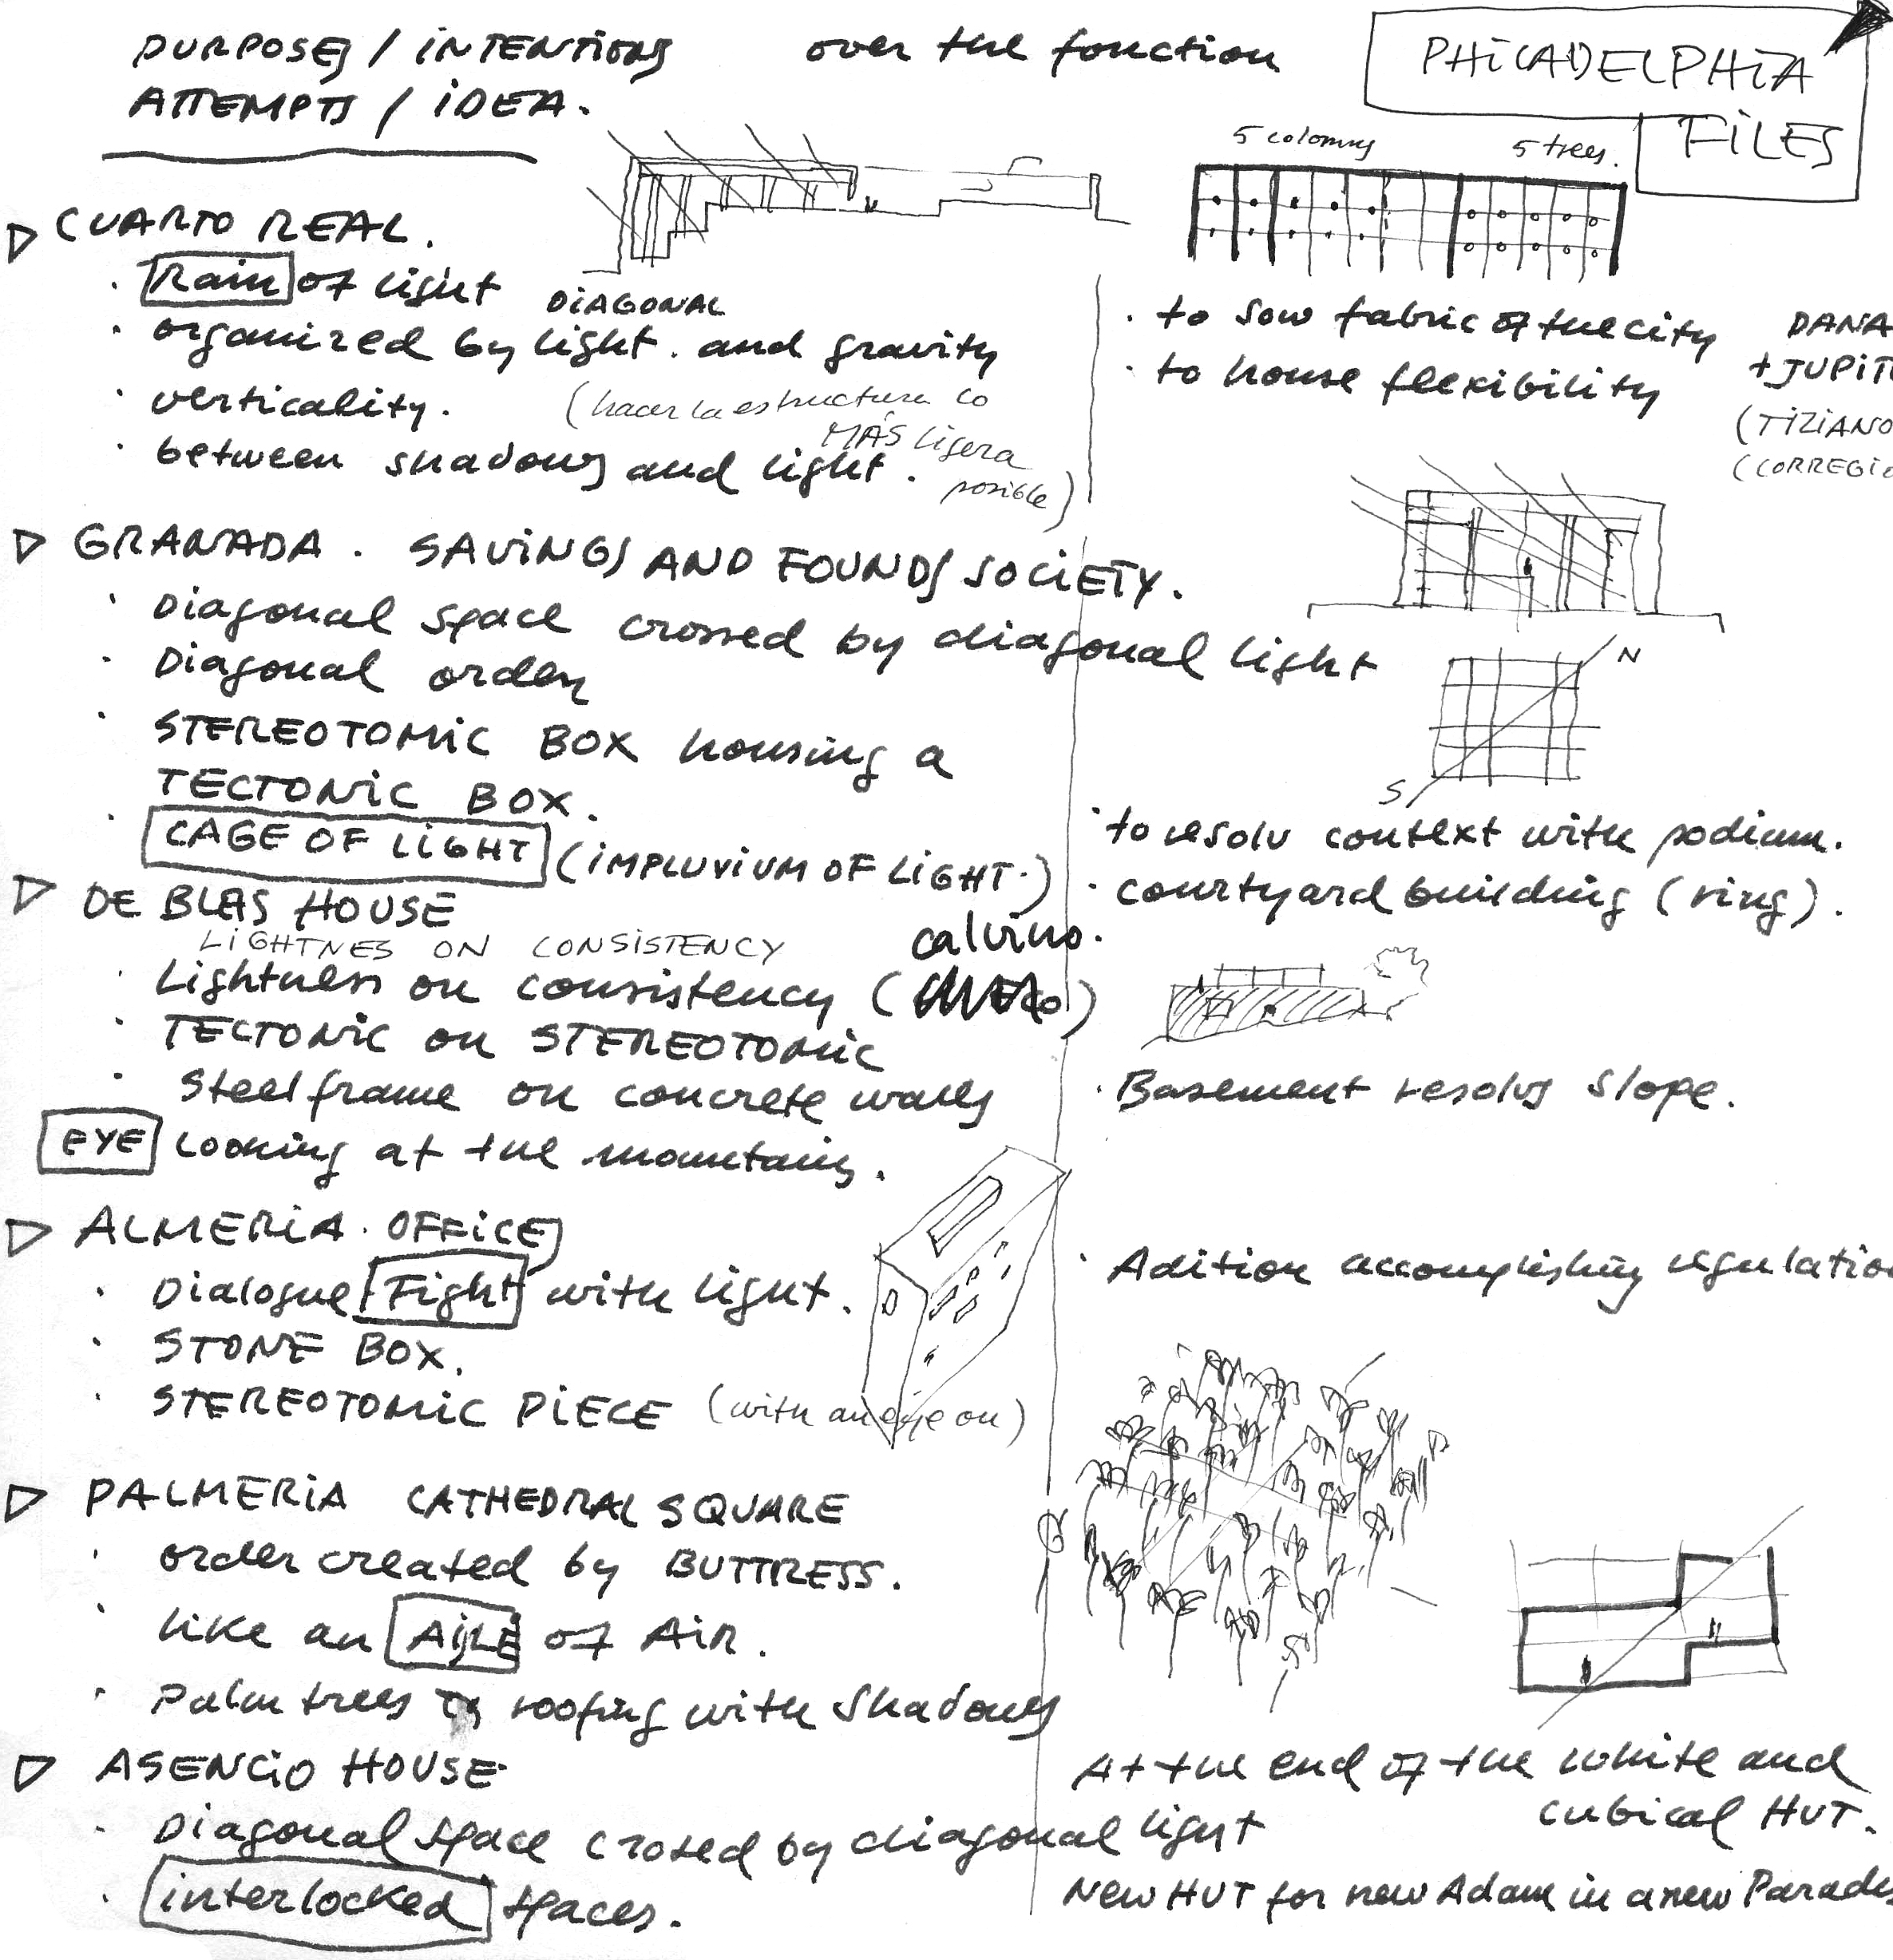 PURPOSES / INTENTIONS over the fonction
ATTEMPTS / IDEA.
PHILADELPHIA
FILES
5 colomns 5 trees.
CUARTO REAL.
· Rain of light
DIAGONAL
· organized by light. and gravity
· verticality.
(hacer la estructura lo
MÁS ligera
posible)
· between shadows and light.
· to sow fabric of the city
· to house flexibility
DANA
+JUPITE
(TIZIANO
(CORREGIO
GRANADA. SAVINGS AND FOUNDS SOCIETY.
· Diagonal space crossed by diagonal light
· Diagonal order
· STEREOTOMIC BOX housing a
TECTONIC BOX.
· CAGE OF LIGHT (IMPLUVIUM OF LIGHT.)
N
S
· to resolv context with podium.
· courtyard building (ring).
DE BLAS HOUSE
LIGHTNES ON CONSISTENCY
calvino.
· Lightness on consistency ( )
· TECTONIC on STEREOTOMIC
· Steel frame on concrete walls
EYE looking at the mountains.
· Basement resolvs slope.
ALMERIA. OFFICES
· Dialogue Fight with light.
· STONE BOX.
· STEREOTOMIC PIECE (with an eye on)
· Adition accomplishing regulation
PALMERIA CATHEDRAL SQUARE
· order created by BUTTRESS.
· like an AISLE of AIR.
· Palm trees roofing with shadows
ASENCIO HOUSE
· Diagonal space crosed by diagonal light
· interlocked spaces.
At the end of the white and
cubical HUT.
NEW HUT for new Adam in a new Paradis